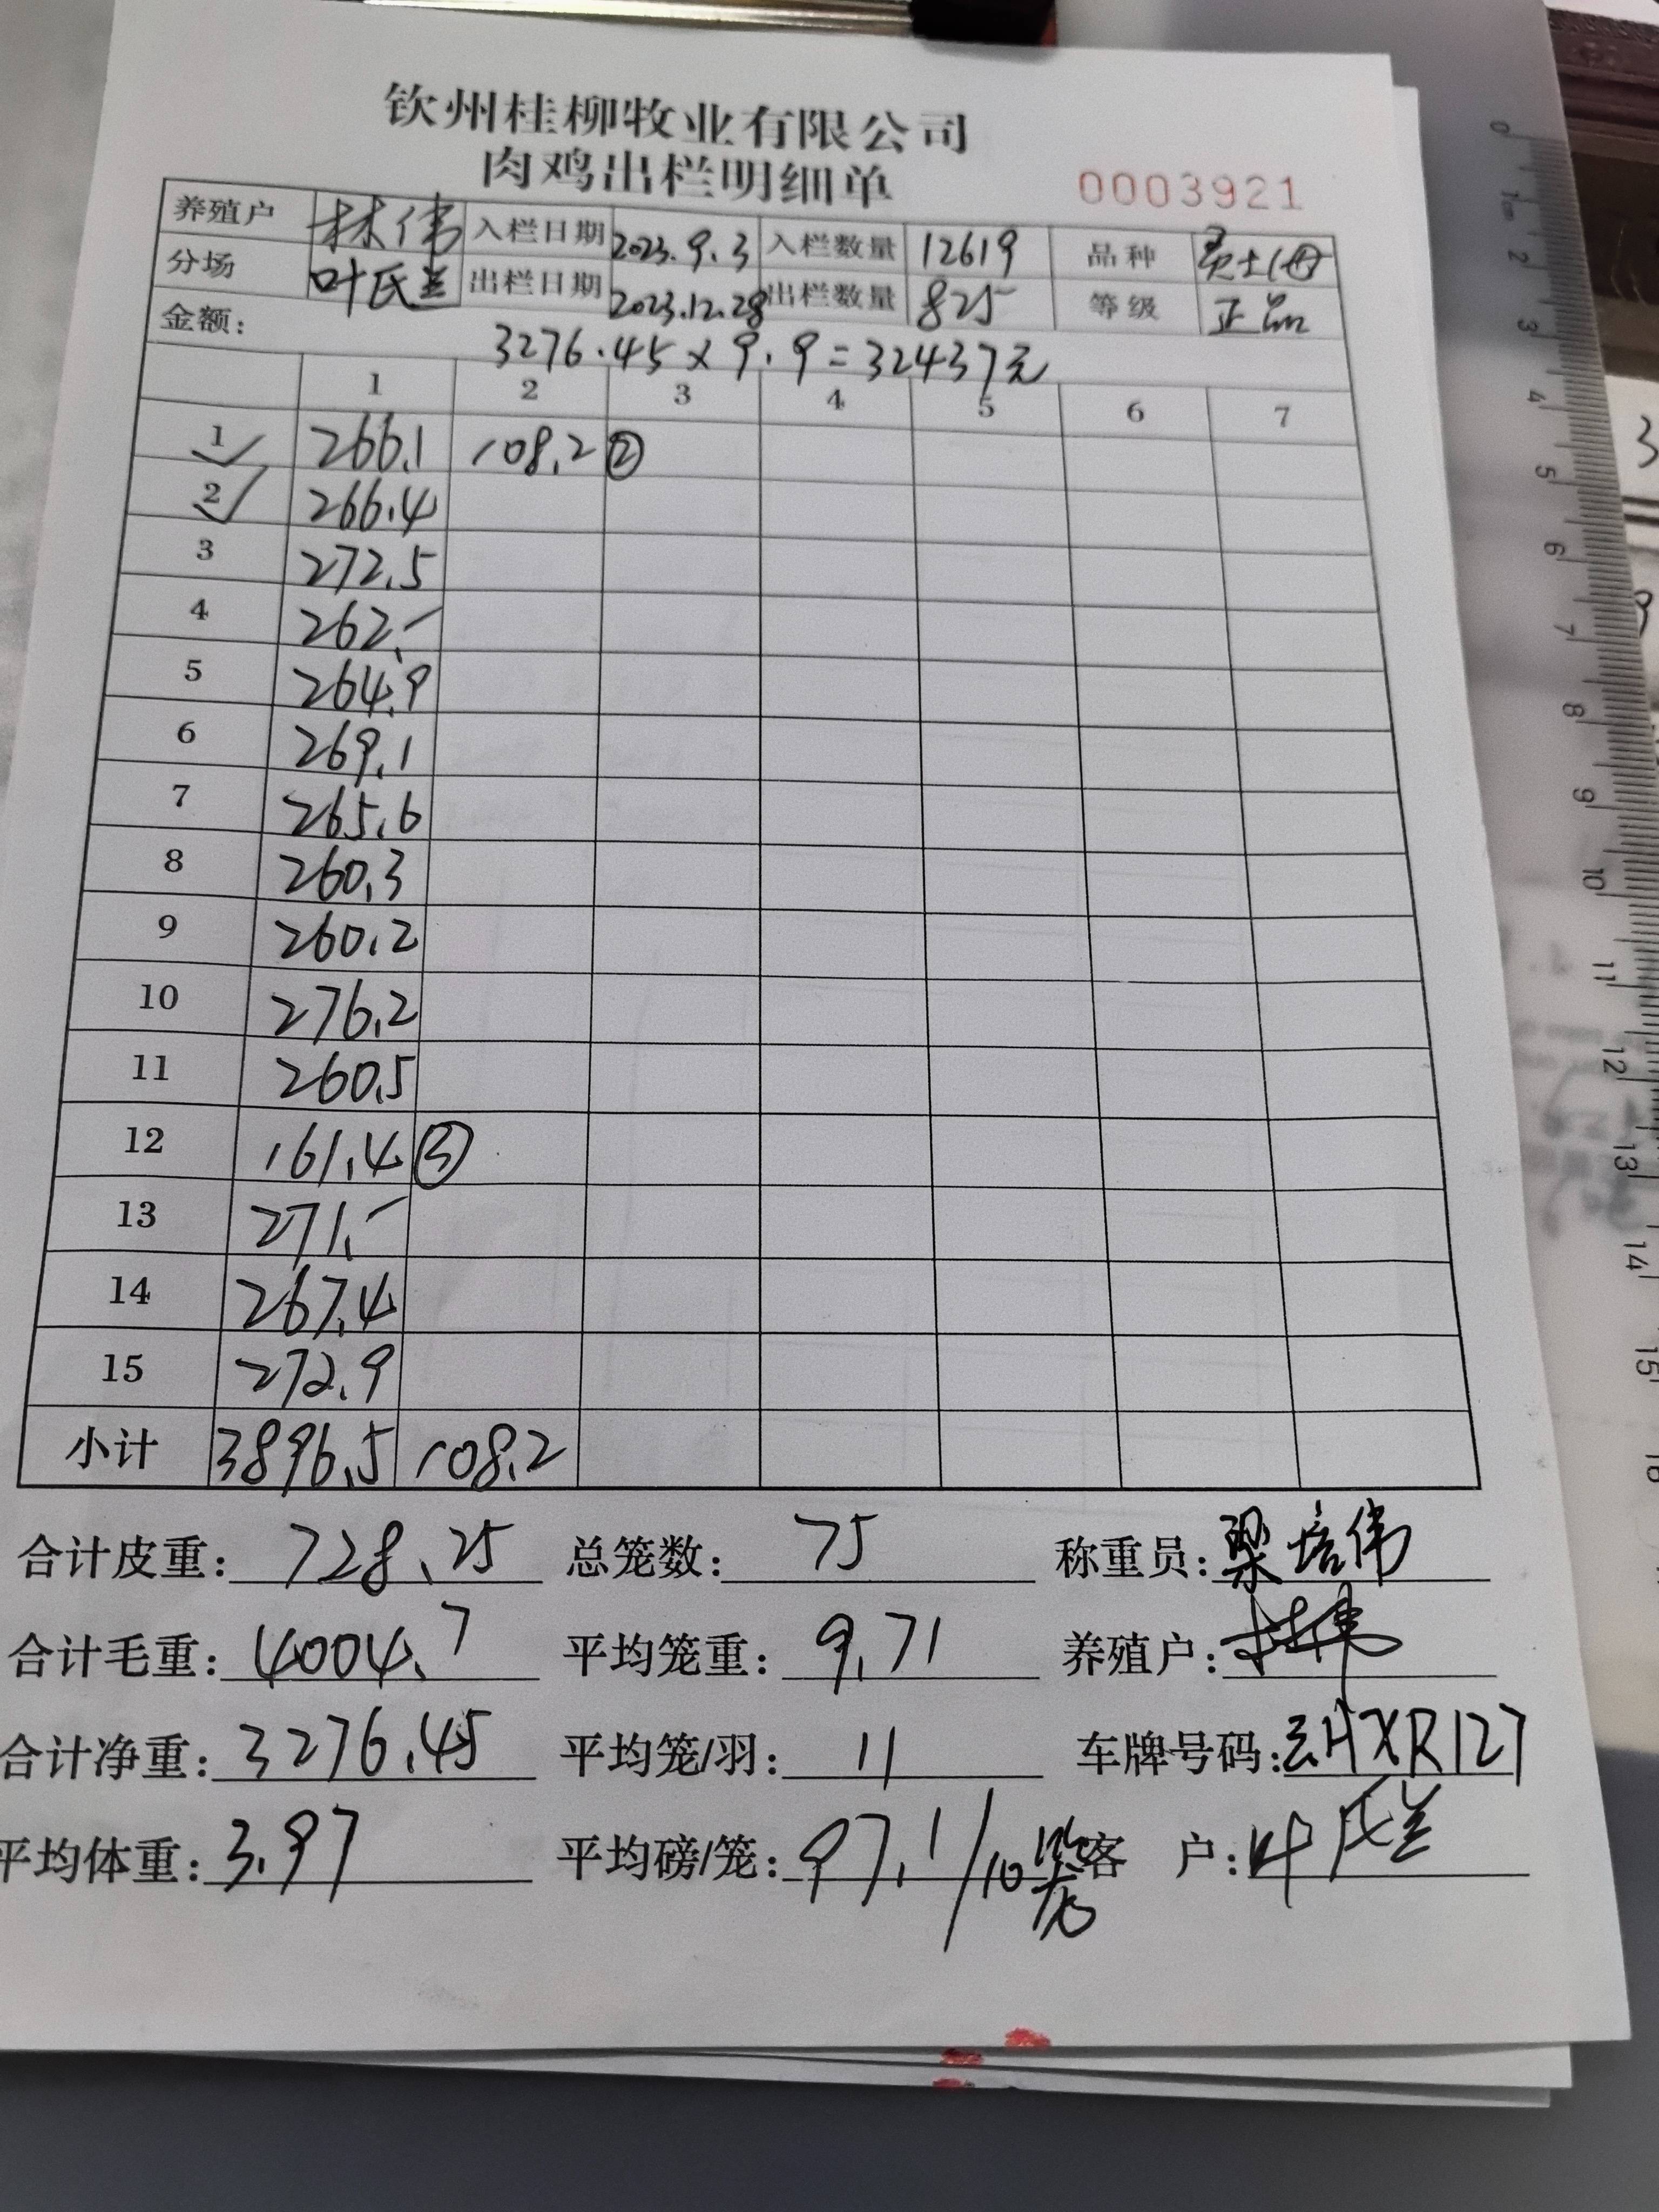 钦州桂柳牧业有限公司
肉鸡出栏明细单 0003921
养殖户 林伟 入栏日期 2023.9.3 入栏数量 12619 品种
分场 叶氏兰 出栏日期 2023.12.28 出栏数量 825 等级 正品
金额: 3276.45×9.9=32437元
1 2 3 4 5 6 7
1 266.1 108.2 ②
2 266.4
3 272.5
4 262.-
5 264.9
6 269.1
7 265.6
8 260.3
9 260.2
10 276.2
11 260.5
12 161.4 ③
13 271.-
14 267.4
15 272.9
小计 3896.5 108.2
合计皮重: 728.25 总笼数: 75 称重员: 梁培伟
合计毛重: 4004.7 平均笼重: 9.71 养殖户: 林伟
合计净重: 3276.45 平均笼/羽: 11 车牌号码: HXR127
平均体重: 3.97 平均磅/笼: 97.1/10 客 户: 叶氏兰